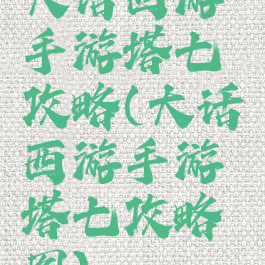 大话西游
手游塔七
攻略(大话
西游手游
塔七攻略
图)